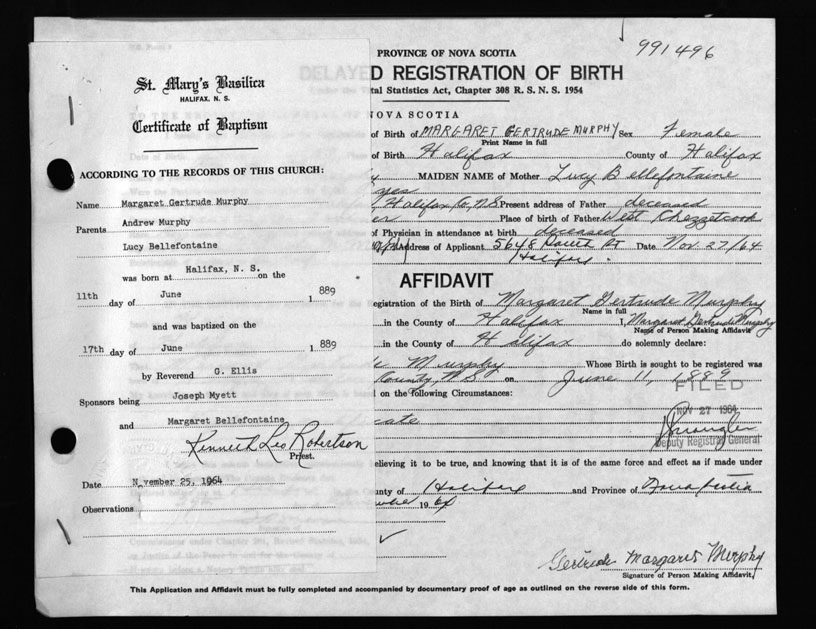 St. Mary's Basilica
HALIFAX, N. S.
Certificate of Baptism
ACCORDING TO THE RECORDS OF THIS CHURCH:
Name Margaret Gertrude Murphy
Parents Andrew Murphy
Lucy Bellefontaine
was born at Halifax, N. S. on the
11th day of June 1 889
and was baptized on the
17th day of June 1 889
by Reverend G. Ellis
Sponsors being Joseph Myett
and Margaret Bellefontaine
Kenneth Leo Robertson
Priest.
Date November 25, 1964
Observations
991496
PROVINCE OF NOVA SCOTIA
DELAYED REGISTRATION OF BIRTH
tal Statistics Act, Chapter 308 R. S. N. S. 1954
NOVA SCOTIA
of Birth of MARGARET GERTRUDE MURPHY Sex Female
Print Name in full
of Birth Halifax County of Halifax
MAIDEN NAME of Mother Lucy Bellefontaine
Halifax Co, N.S. Present address of Father deceased
er Place of birth of Father West Chezzetcook
of Physician in attendance at birth deceased
Address of Applicant 5648 Date Nov. 27/64
Halifax.
AFFIDAVIT
egistration of the Birth of Margaret Gertrude Murphy
Name in full
in the County of Halifax I, Margaret Gertrude Murphy
Name of Person Making Affidavit
in the County of Halifax do solemnly declare:
Murphy Whose Birth is sought to be registered was
County, N.S. on June 11, 1889
FILED
on the following Circumstances:
NOV 27 1964
cate
Deputy Registrar General
elieving it to be true, and knowing that it is of the same force and effect as if made under
unty of Halifax and Province of Nova Scotia
19 64
Gertrude Margaret Murphy
Signature of Person Making Affidavit
This Application and Affidavit must be fully completed and accompanied by documentary proof of age as outlined on the reverse side of this form.